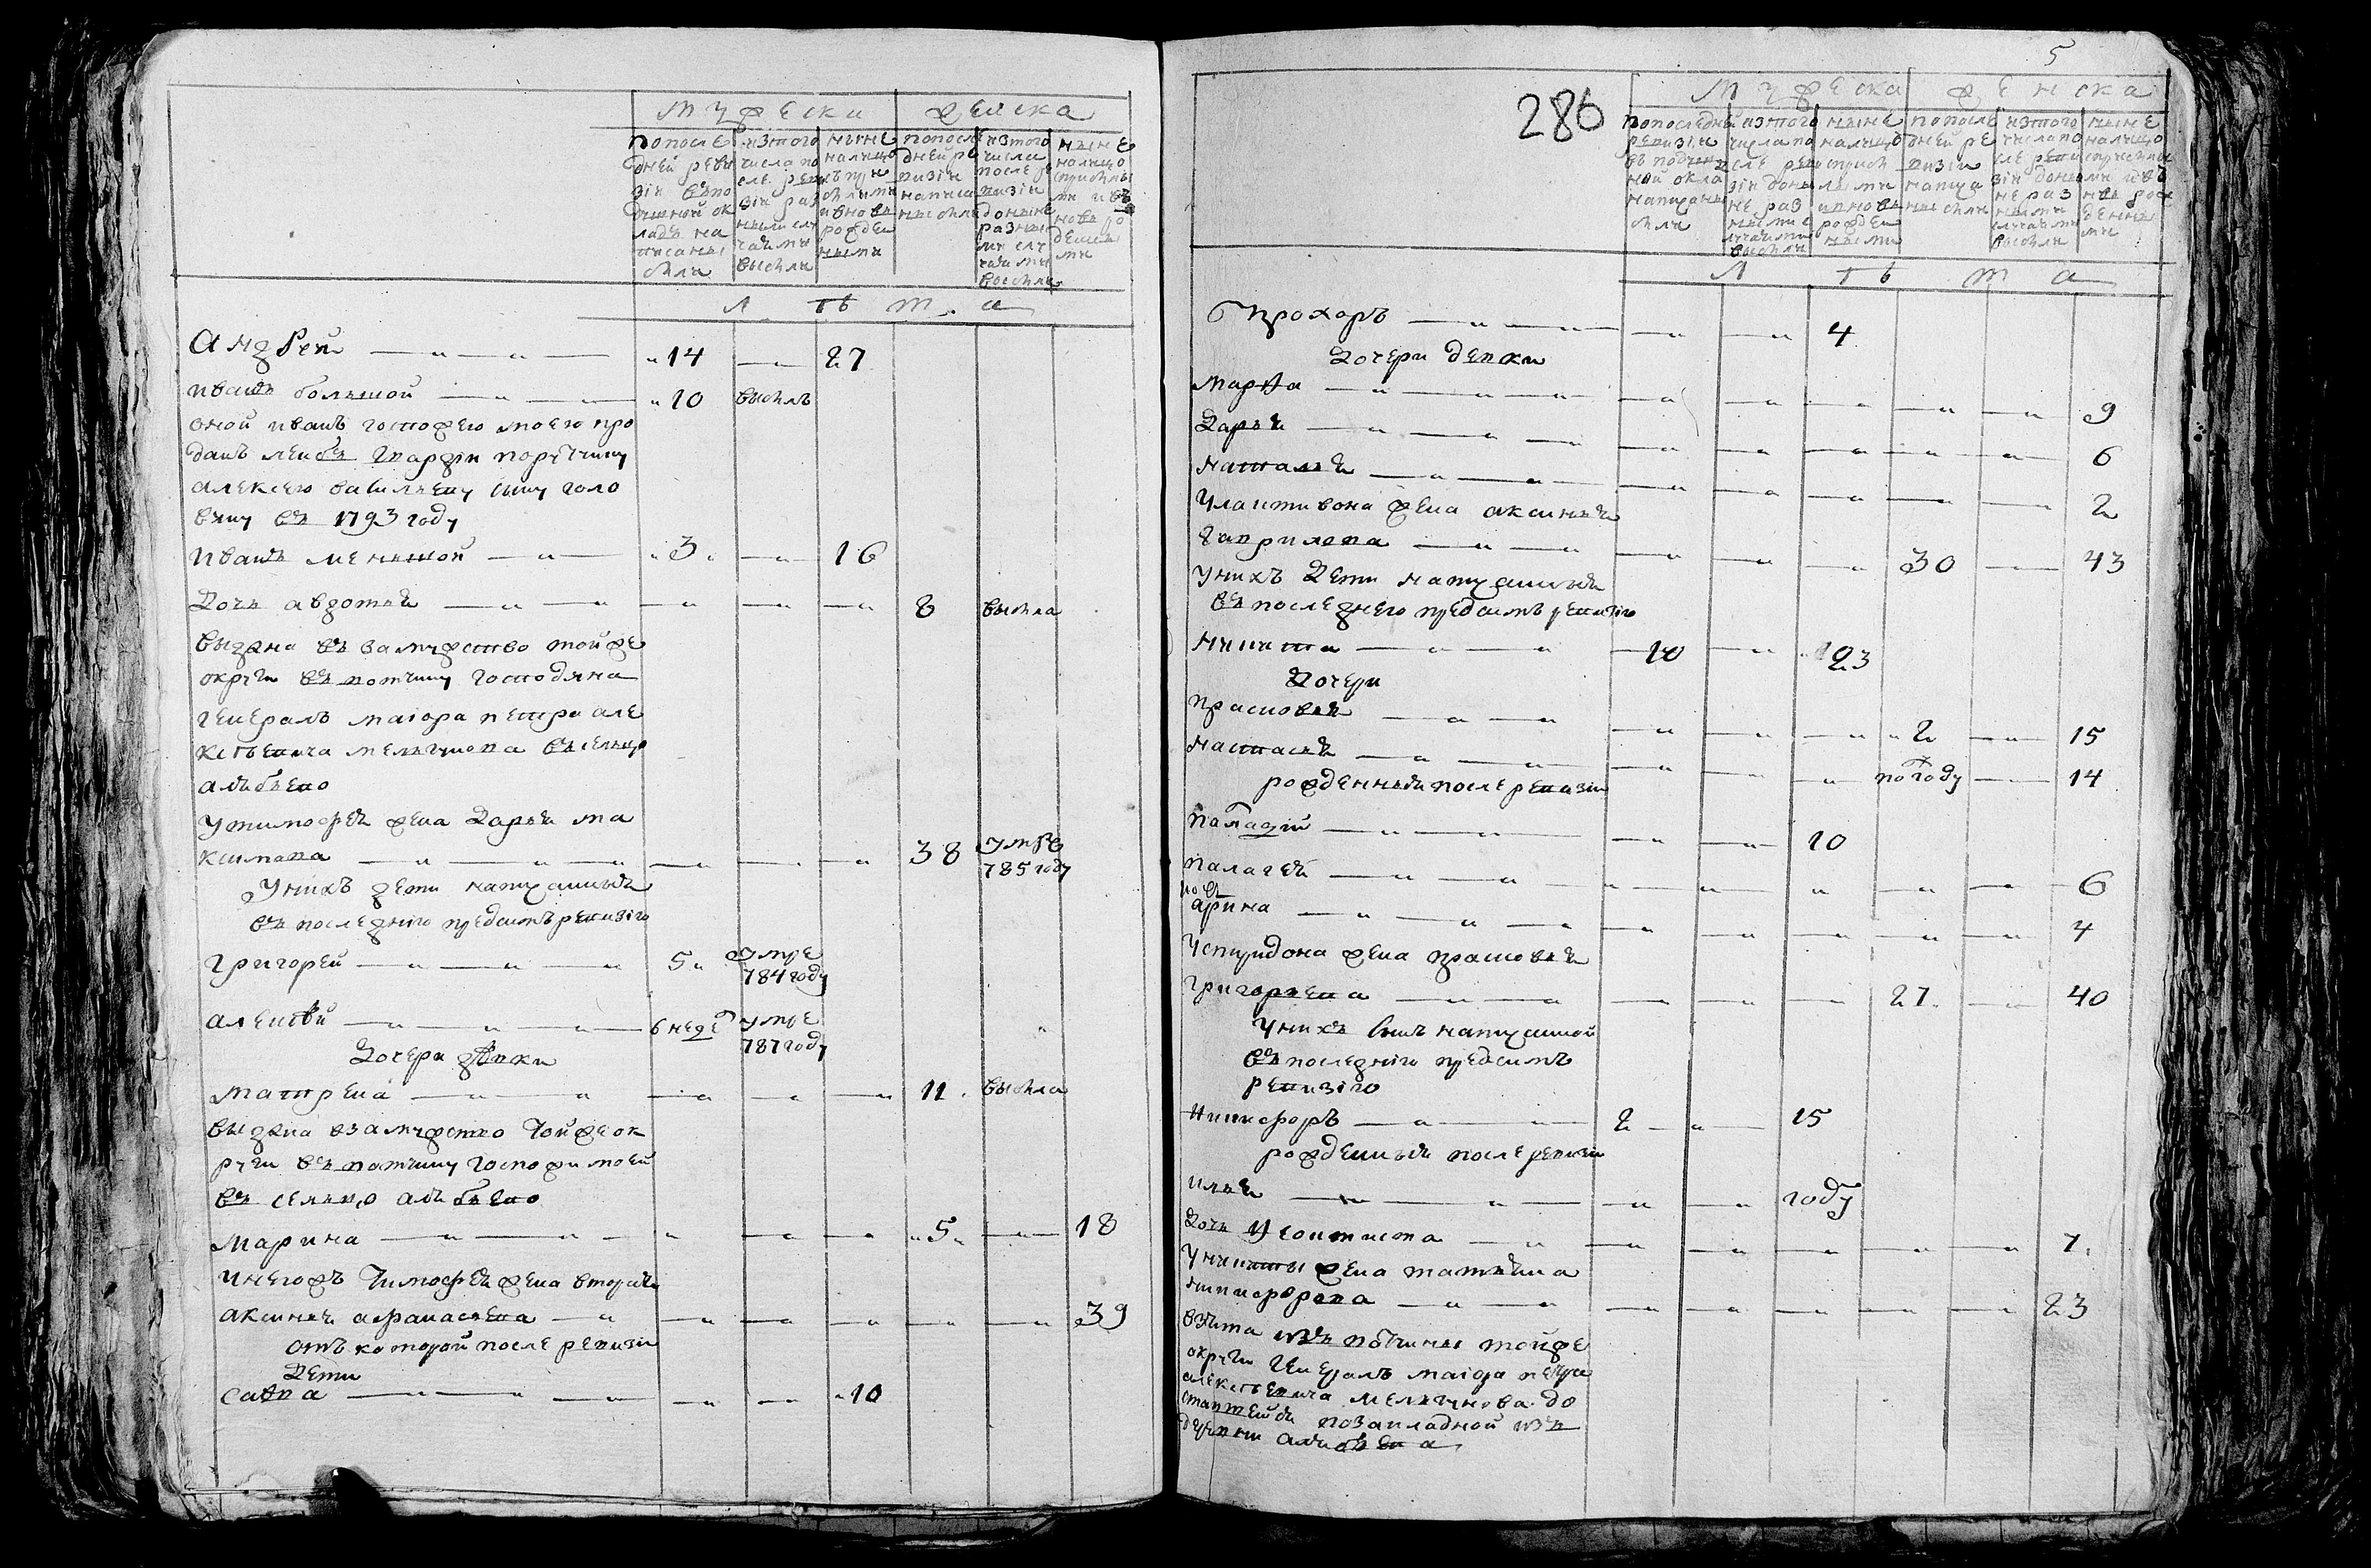 мужеска женска
по после дней реви зіи въ по душной ок ладъ на писаны были
изъ того числа по сле реви зіи раз ными слу чаями выбыли
ныне на лицо съ при былыми и вновь рожден ными
по после дней ре визіи написа ны были
изъ того числа после ре визіи до ныне разны ми слу чаями выбыли
ныне на лицо с прибылы ми и въ новь ро жденны ми
л ѣ т а
Андрей — 14 — 27
иванъ большой — 10 выбылъ
оной иванъ госпожею моею про
данъ лейбъ гвардіи порутчику
алексею васильеву сыну голо
вину въ 1793 году
иванъ меньшой — 3 — 16
Дочь авдотья — 8 выбыла
выдана въ замужество той же
округи въ вотчину господина
генералъ маіора петра але
ксѣевича мельгунова въ сельцо
алябьево
у тимофея жена Дарья ма
ксимова — 38 умре 785 году
у нихъ дети написанныя
въ последнюю предъ симъ ревизію
григорей — 5 умре 784 году
алексѣй — 6 неде умре 787 году
Дочери девки
матрена — 11 выбыла
выдана в замужство той же ок
руги въ вотчину госпожи моей
въ сельцо алябьево
марина — 5 — 18
у него жъ Тимофея жена вторая
аксинья афанасьева — 39
отъ которой после ревизіи
Дети
савва — 10
5
286
мужеска женска
по последней ревизіи въ подушной окла написаны были
изъ того числа по сле реви зіи до ны не раз ными с лучаями выбыли
ныне на лицо съ прибы лыми и вновь рожден ными
по после дней ре визіи написа ны были
изъ того числа по сле реви зіи до ны не раз ными случаями выбыли
ныне на лицо с прибылы ми и въ новь рож денны ми
л ѣ т а
Прохоръ — 4
Дочери девки
марѳа — 9
Дарья — 6
наталья — 2
у лаптивона жена аксинья
гаврилова — 30 — 43
у нихъ Дети написанныя
въ последнею предъ симъ ревизію
никита — 10 — 23
Дочери
прасковья — 2 — 15
настасья — по году — 14
рожденныя после ревизіи
палагей — 6
но въ
арина — 4
у спиридона жена прасковья
григорьева — 27 — 40
у нихъ сынъ написанной
въ последнюю предъ симъ
ревизію
никифоръ — 2 — 15
рожденныя после ревизіи
илья — году
Дочь — 7
у никиты жена татьяна
никифорова — 23
взята изъ вотчины той же
округи генералъ маіора петра
алексѣевича мельгунова до
ставшейся по закладной изъ
деревни алябьева